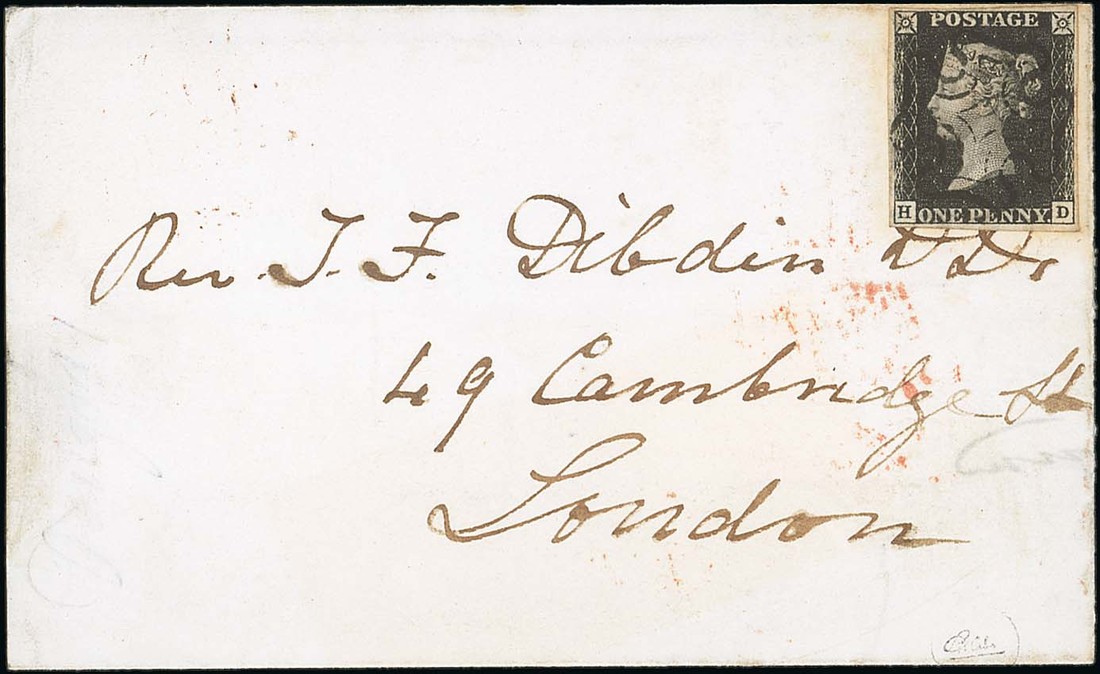 POSTAGE
H ONE PENNY D
Rev. T. F. Dibdin D.D.
49 Cambridge St
London